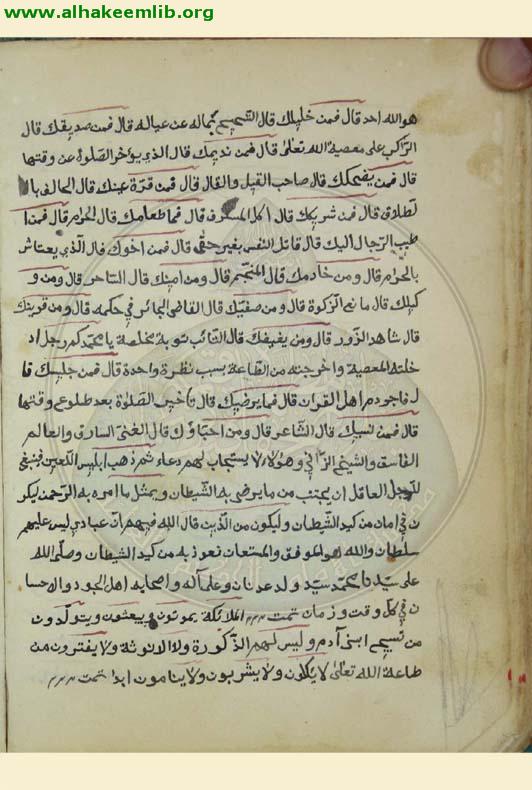 www.alhakeemlib.org
هو الله احد قال فمن خليلك قال الشحيح بماله عن عياله قال فمن صديقك قال
الراكب على معصية الله تعالى قال فمن نديمك قال الذي يؤخر الصلوة عن وقتها
قال فمن يضحكك قال صاحب القيل والقال قال فمن قرة عينك قال الحالف با
لطلاق قال فمن شريكك قال اكل المسرف قال فما طعامك قال الحرام قال فمن ا
طيب الرجال اليك قال قاتل النفس بغير حق قال فمن اخوك قال الذي يعتاش
بالحرام قال ومن خادمك قال المنجم قال ومن امينك قال الساحر قال ومن و
كيلك قال مانع الزكوة قال ومن صفيك قال القاضي الجائر في حكمه قال ومن قرينك
قال شاهد الزور قال ومن يغيضك قال التائب توبة مخلصة يا محمد كم رجل اد
خلته المعصية واخرجته من الطاعة بسبب نظرة واحدة قال فمن جليسك قا
ل فاجر دم اهل القران قال فما يرضيك قال تأخير الصلوة بعد طلوع وقتها
قال فمن نسيبك قال الشاعر قال ومن احباؤك قال الغني السارق والعالم
الفاسق والشيخ الزاني وهؤلاء لا يستجاب لهم دعاء ثم ذهب ابليس اللعين فينبغي
للرجل العاقل ان يجتنب من ما يرضى به الشيطان ويمثل ما امره به الرحمن ليكو
ن في امان من كيد الشيطان وليكون من الذين قال الله فيهم ان عبادي ليس عليهم
سلطان والله هو الموفق والمستعان نعوذ به من كيد الشيطان وصلى الله
على سيدنا محمد سيد ولد عدنان وعلى آله واصحابه اهل الجود والاحسا
ن في كل وقت وزمان تمت الملائكة يموتون ويبعثون ويتولدون
من تسبيح ابني آدم وليس لهم الذكورة ولا الانوثة ولا يفترون من
طاعة الله تعالى لا يكلون ولا يشربون ولا ينامون ابدا تمت